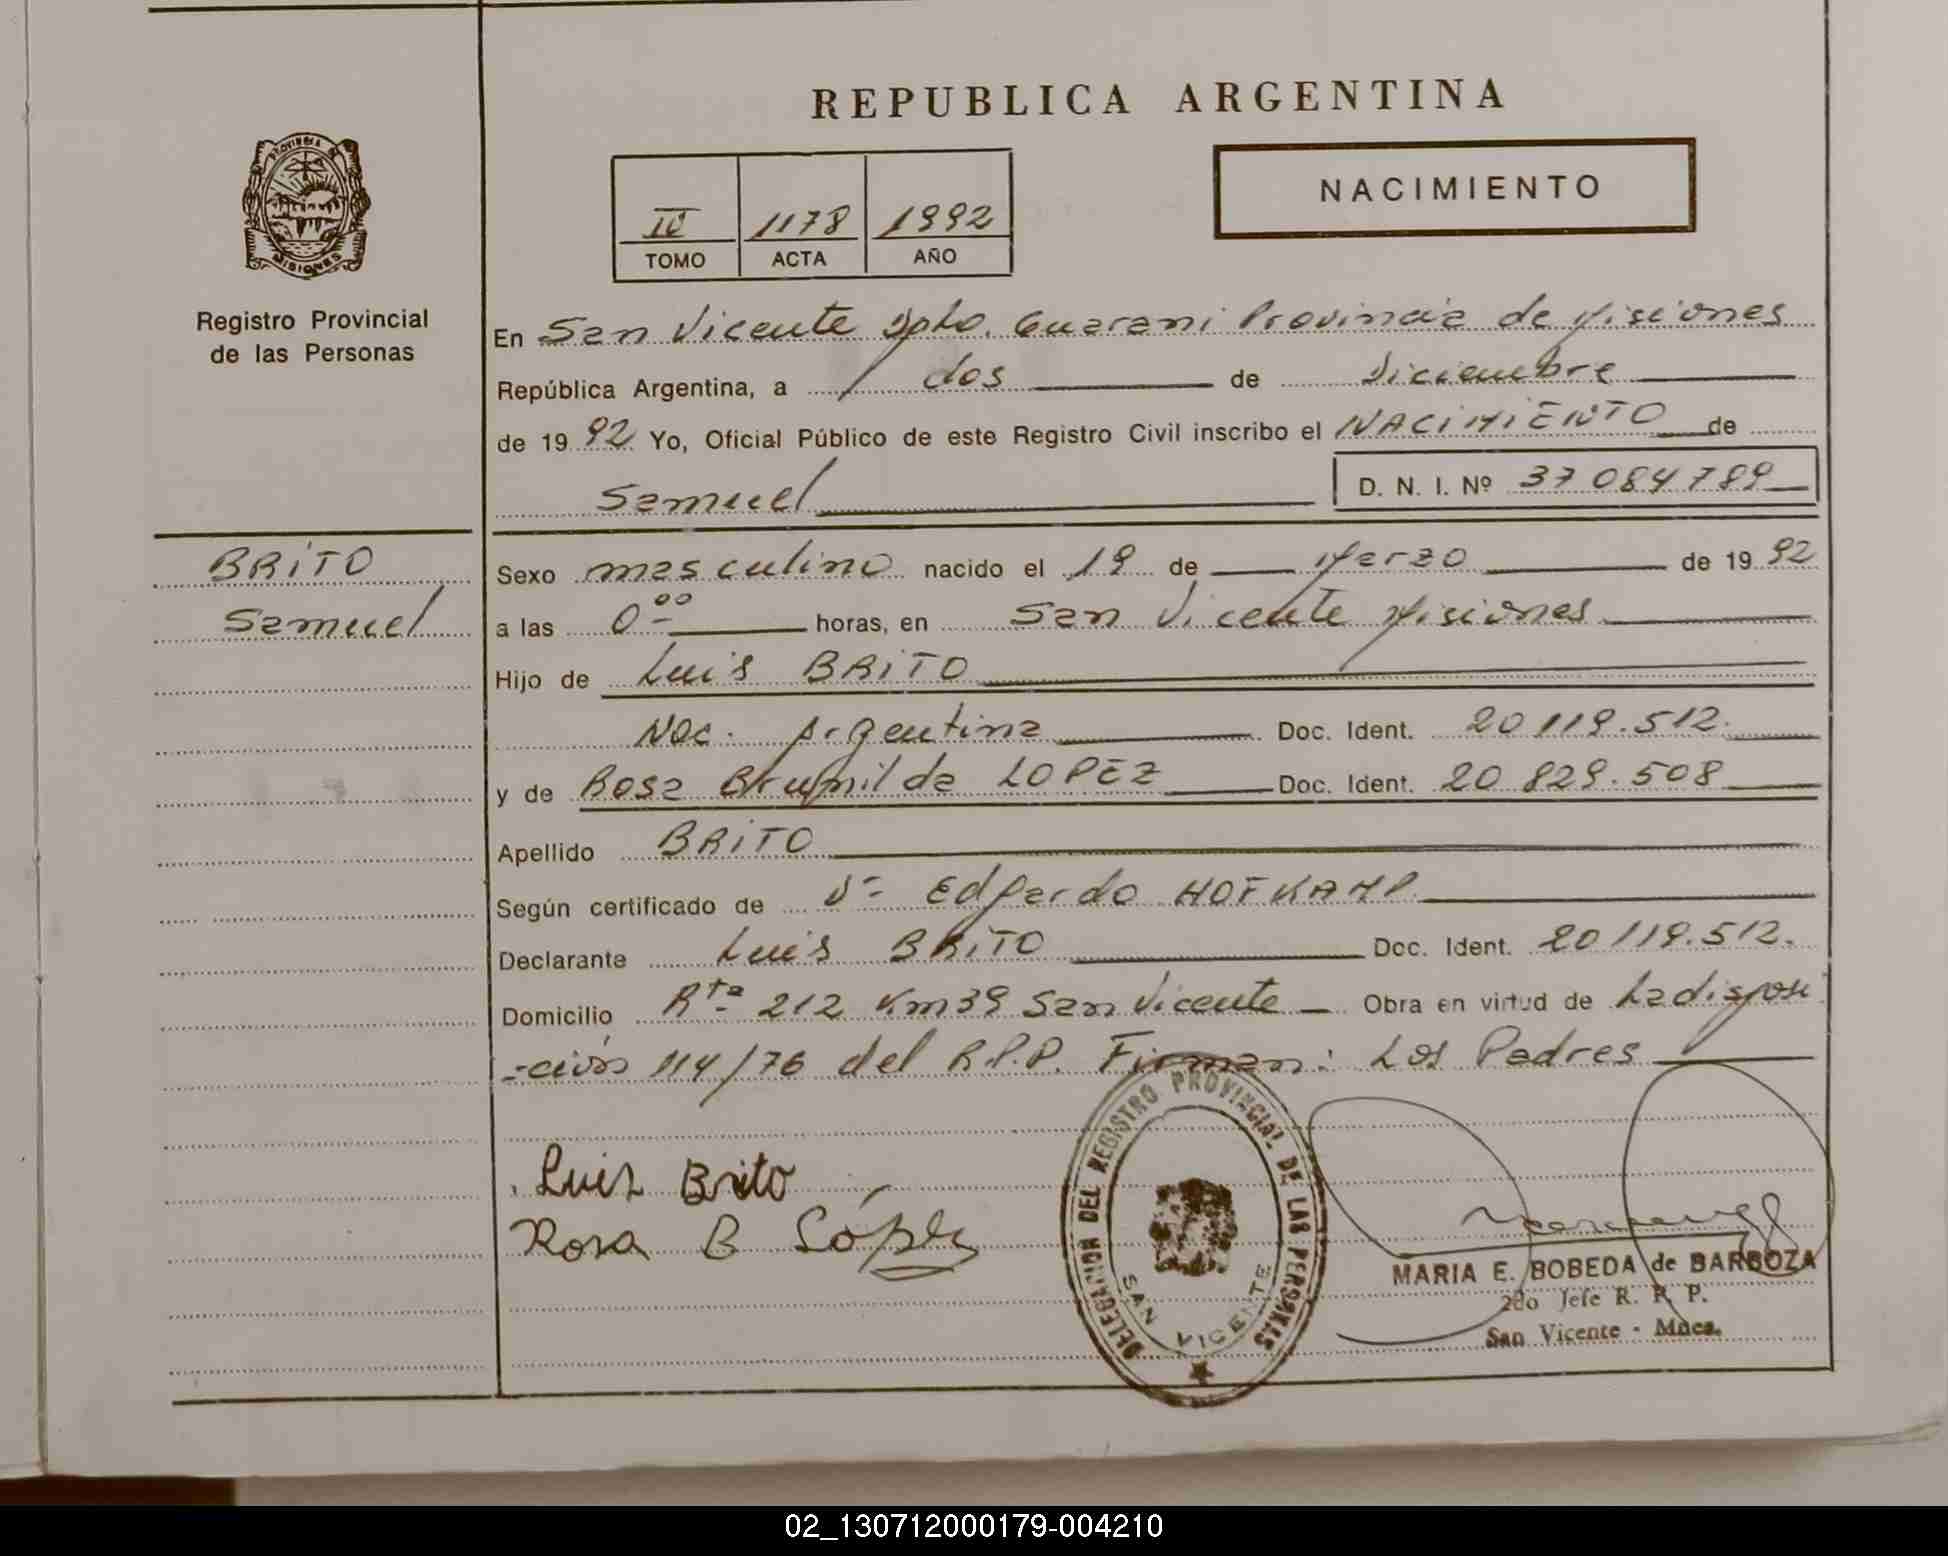 REPUBLICA ARGENTINA
Provincia de
MISIONES
Registro Provincial
de las Personas
IV 1178 1992
TOMO ACTA AÑO
NACIMIENTO
En San Vicente Dpto. Guarani Provincia de Misiones
República Argentina, a dos de Diciembre
de 1992 Yo, Oficial Público de este Registro Civil inscribo el NACIMIENTO de
Samuel D. N. I. Nº 37 084 789
BRITO
Samuel
Sexo masculino nacido el 19 de Marzo de 1992
a las 0 00 horas, en San Vicente Misiones
Hijo de Luis BRITO
Nac. Argentina Doc. Ident. 20 119.512.
y de Rosa Brunilda LOPEZ Doc. Ident. 20 829.508
Apellido BRITO
Según certificado de Edgardo HOFKAMP
Declarante Luis BRITO Doc. Ident. 20 119.512.
Domicilio Rta 212 Km 39 San Vicente Obra en virtud de La disposi
-ción 114/76 del R.P.P. Firman: Los Padres
Luis Brito
Rosa B López
DELEGACION DEL REGISTRO PROVINCIAL DE LAS PERSONAS
SAN VICENTE
MARIA E. BOBEDA de BARBOZA
2do Jefe R. P. P.
San Vicente - Mnes.
02_130712000179-004210